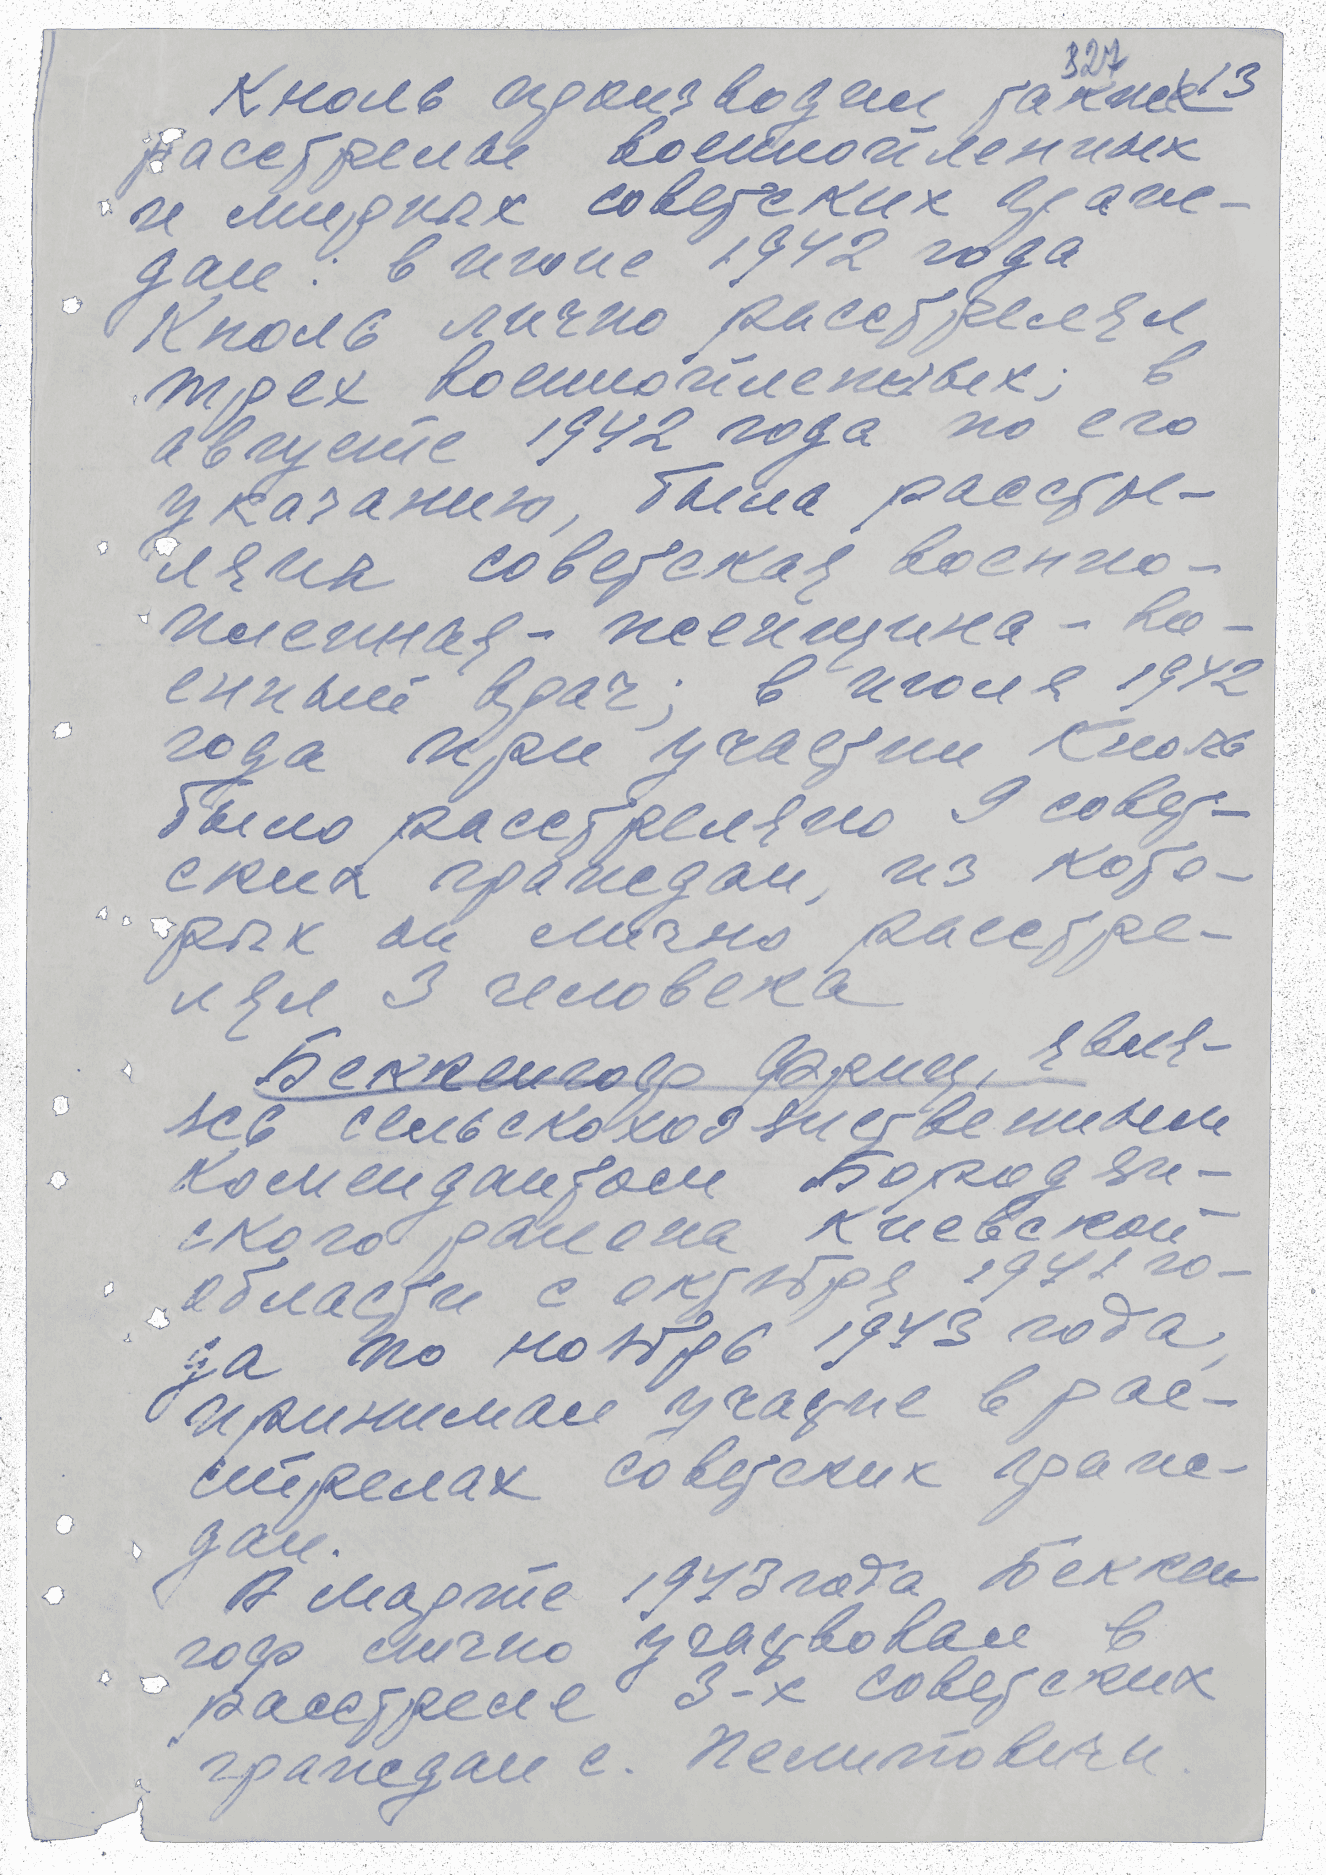 327
113
Кноль производил также
расстрелы военнопленных
и мирных советских граж-
дан: в июне 1942 года
Кноль лично расстрелял
трех военнопленных; в
августе 1942 года по его
указанию, была расстре-
ляна советская военно-
пленная - женщина - во-
енный врач; в июле 1942
года при участии Кноль
было расстреляно 9 совет-
ских граждан, из кото-
рых он лично расстре-
лял 3 человека
Беккенгоф Фриц, являя-
сь сельскохозяйственным
комендантом Бородян-
ского района Киевской
области с октября 1941 го-
да по ноябрь 1943 года,
принимал участие в рас-
стрелах советских граж-
дан.
В марте 1943 года Беккен
гоф лично участвовал в
расстреле 3-х советских
граждан с.